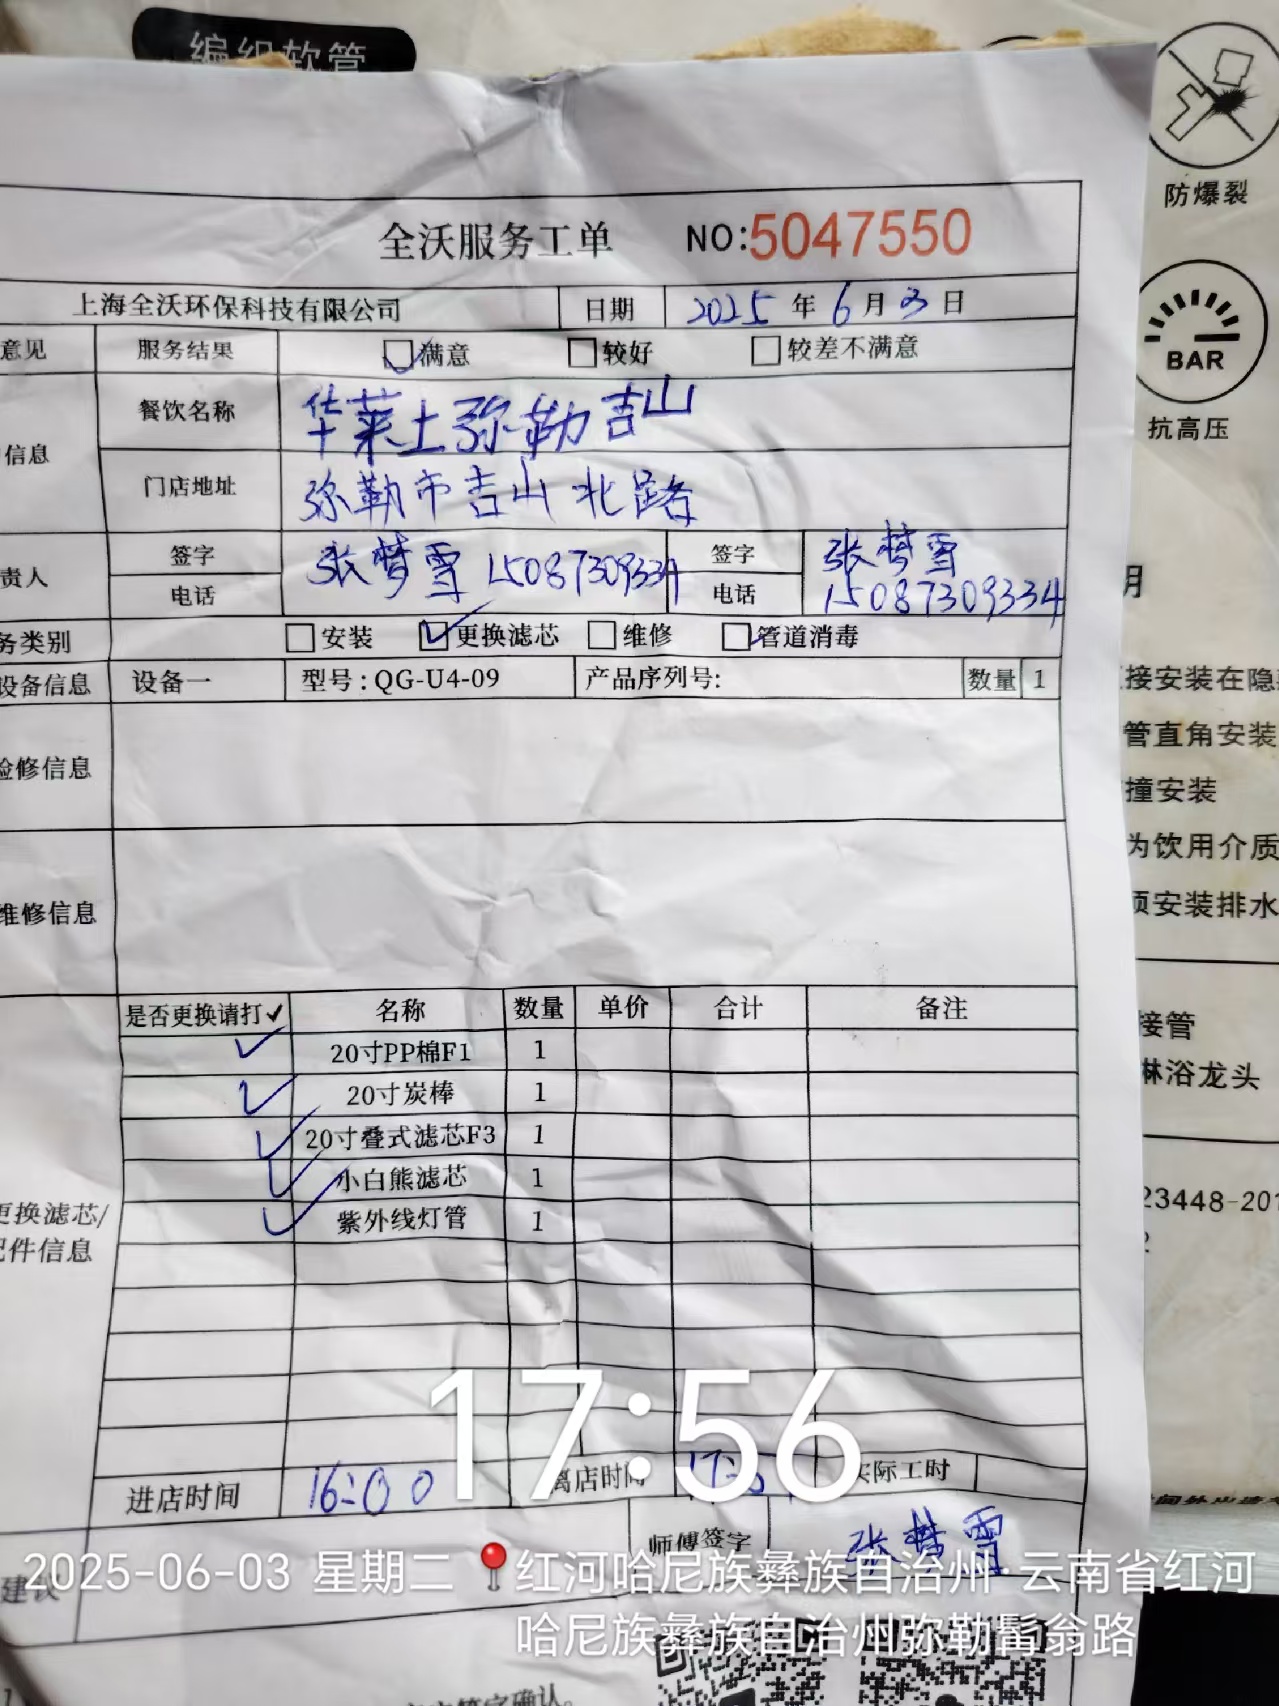 编织软管
防爆裂
全沃服务工单 NO:5047550
上海全沃环保科技有限公司 日期 2025年6月3日
BAR
抗高压
意见 服务结果 满意 较好 较差不满意
餐饮名称 华莱士弥勒吉山
信息
门店地址 弥勒市吉山北路
责人 签字 张梦雪 15087309334 签字 张梦雪
电话 电话 15087309334
务类别 安装 更换滤芯 维修 管道消毒
设备信息 设备一 型号:QG-U4-09 产品序列号: 数量 1
接安装在隐
管直角安装
检修信息
撞安装
为饮用介质
维修信息
安装排水
是否更换请打✓ 名称 数量 单价 合计 备注
接管
20寸PP棉F1 1
淋浴龙头
20寸炭棒 1
20寸叠式滤芯F3 1
小白熊滤芯 1
23448-201
更换滤芯/
紫外线灯管 1
配件信息
17:56
进店时间 16:00 离店时间 实际工时
师傅签字 张梦雪
建议
2025-06-03 星期二 红河哈尼族彝族自治州 云南省红河
哈尼族彝族自治州弥勒髯翁路
签字确认。